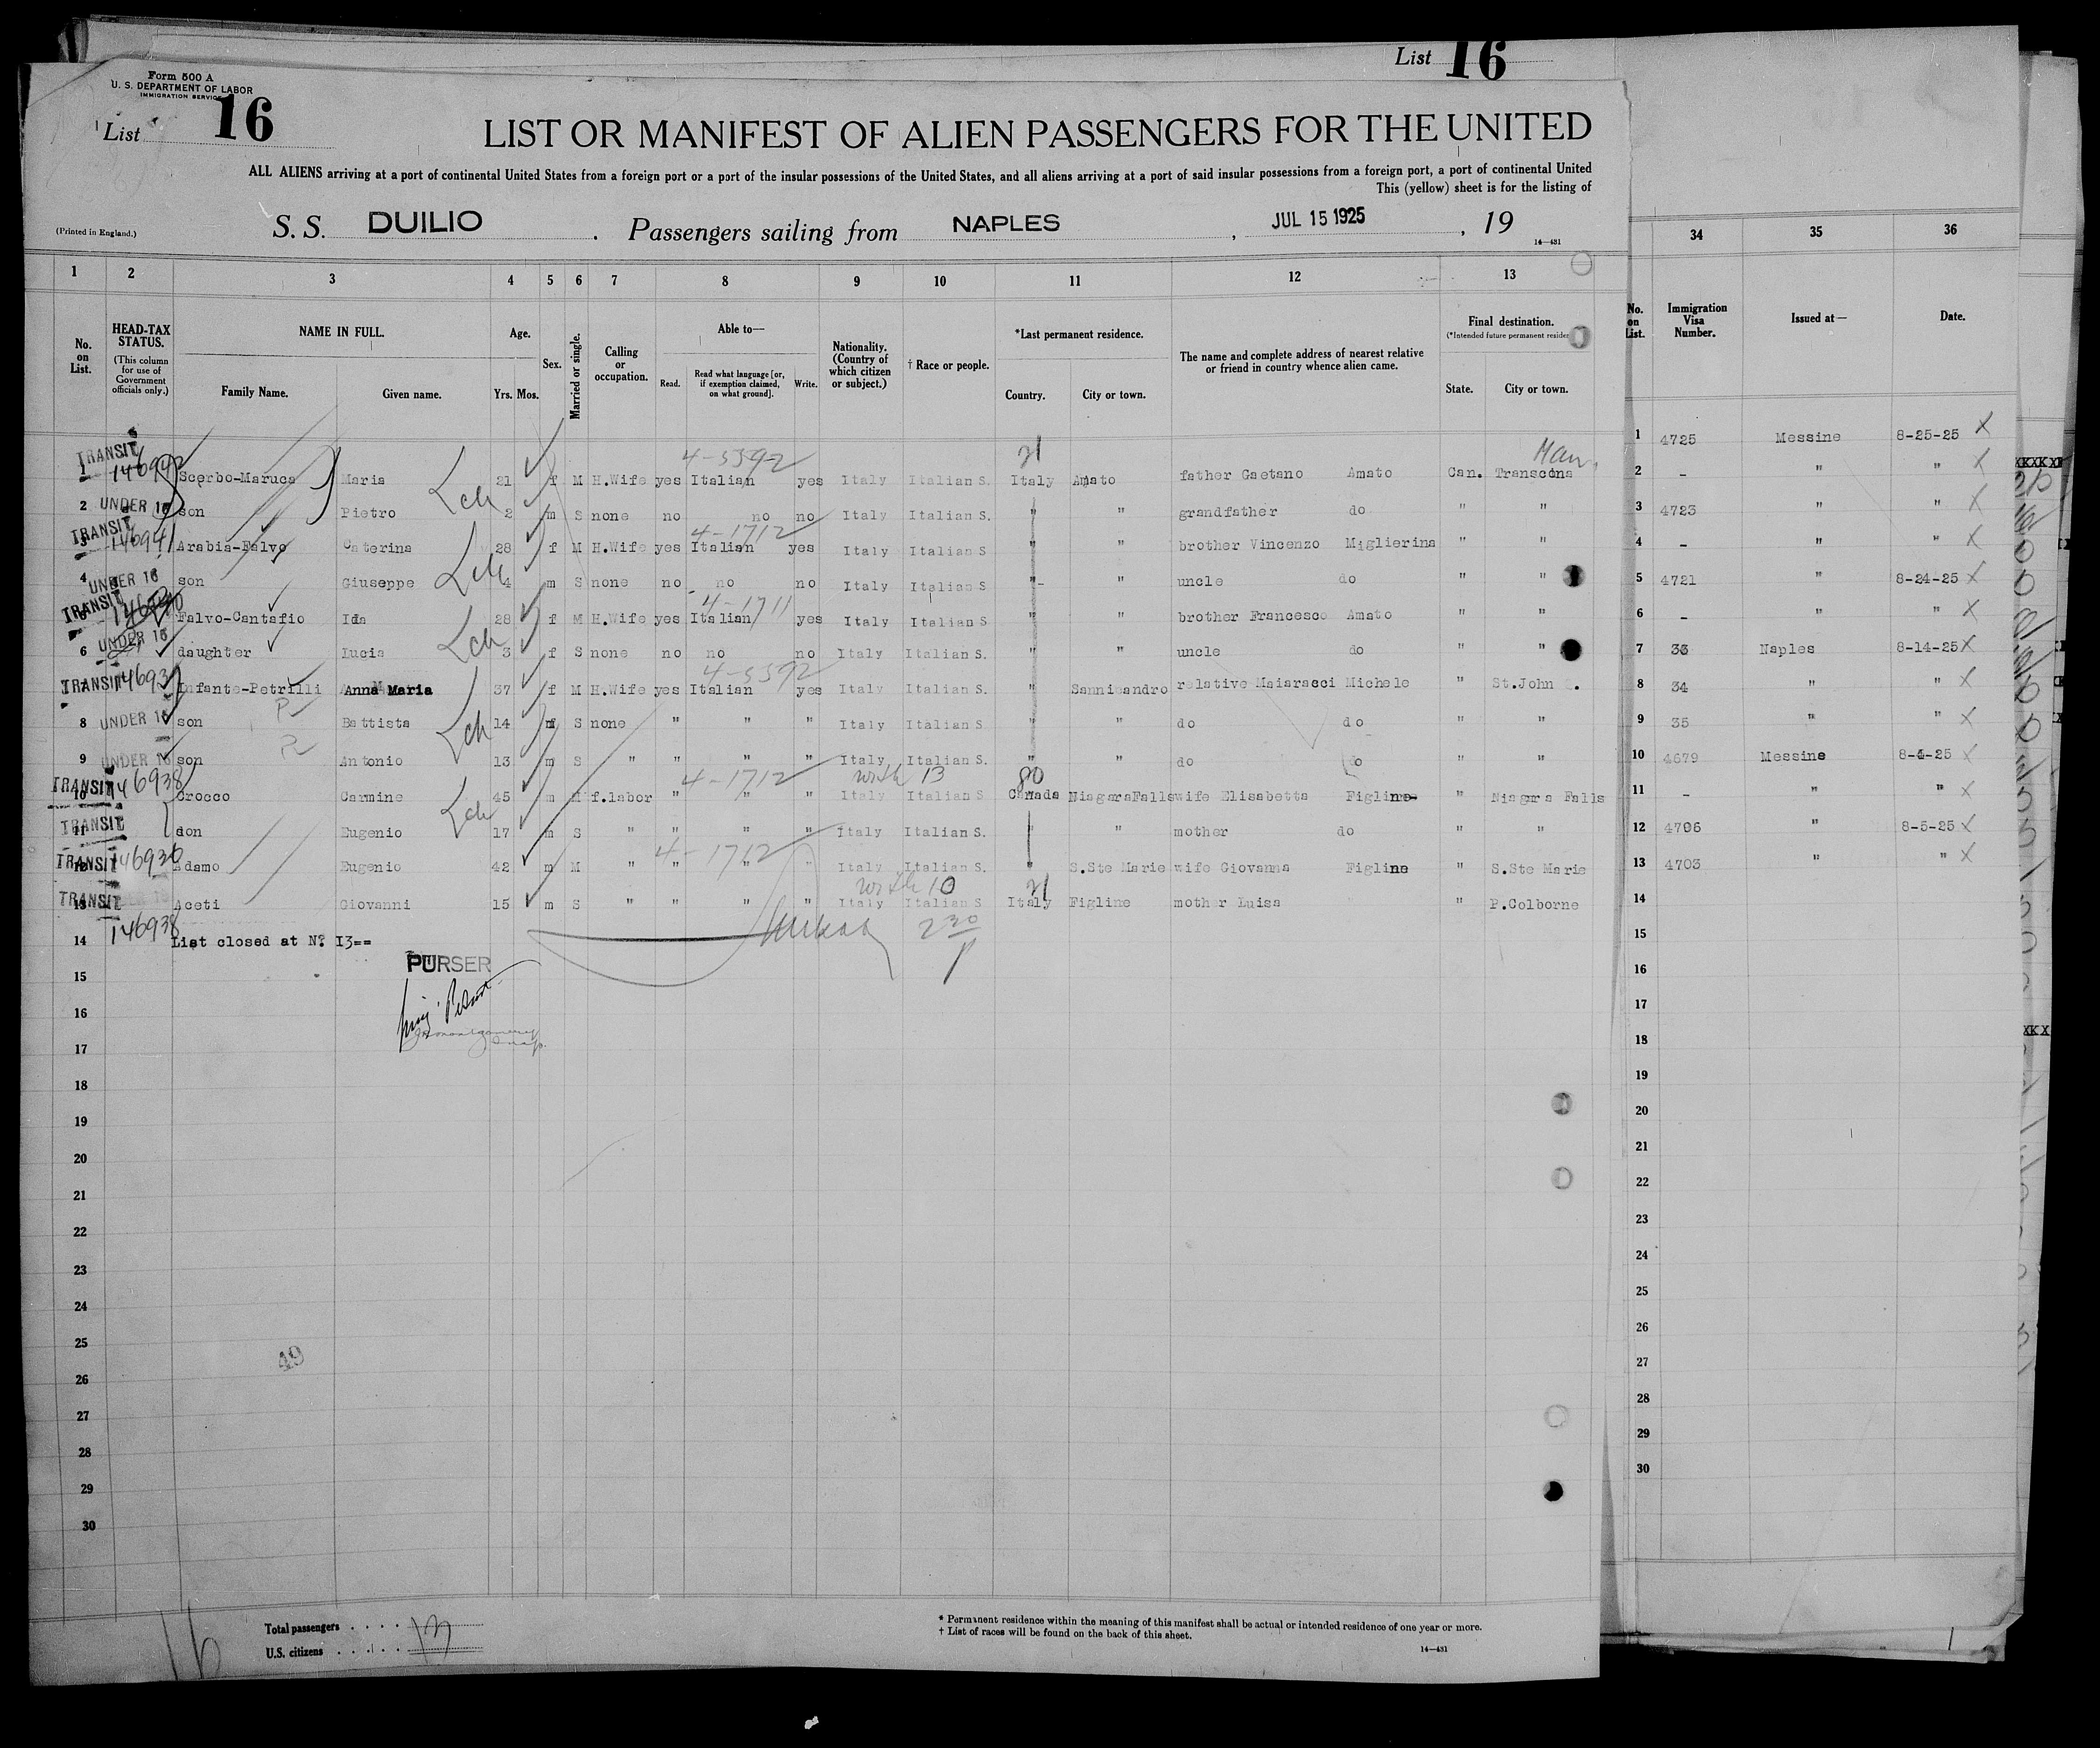 List 16
Form 500 A
U. S. DEPARTMENT OF LABOR
IMMIGRATION SERVICE
List 16
LIST OR MANIFEST OF ALIEN PASSENGERS FOR THE UNITED
ALL ALIENS arriving at a port of continental United States from a foreign port or a port of the insular possessions of the United States, and all aliens arriving at a port of said insular possessions from a foreign port, a port of continental United
This (yellow) sheet is for the listing of
(Printed in England.)
S. S. DUILIO . Passengers sailing from NAPLES , JUL 15 1925 , 19
14—431
1 2 3 4 5 6 7 8 9 10 11 12 13
No. on List.
HEAD-TAX STATUS.
(This column for use of Government officials only.)
NAME IN FULL.
Family Name. Given name.
Age.
Yrs. Mos.
Sex.
Married or single.
Calling or occupation.
Able to—
Read. Read what language [or, if exemption claimed, on what ground]. Write.
Nationality. (Country of which citizen or subject.)
† Race or people.
*Last permanent residence.
Country. City or town.
The name and complete address of nearest relative or friend in country whence alien came.
Final destination.
(*Intended future permanent
State. City or town.
TRANSIT 4-5392 21 Man.
1 146942 Scerbo-Maruca Maria 21 f M H.Wife yes Italian yes Italy Italian S. Italy Amato father Gaetano Amato Can. Transcona
2 UNDER 16 son Pietro 2 m S none no no no Italy Italian S. " " grandfather do " "
TRANSIT 4-1712
3 146941 Arabia-Falvo Caterina 28 f M H.Wife yes Italian yes Italy Italian S " " brother Vincenzo Miglierina " "
4 UNDER 16 son Giuseppe 4 m S none no no no Italy Italian S " " uncle do " "
TRANSIT 4-1711
Falvo-Cantafio Ida 28 f M H.Wife yes Italian yes Italy Italian S " " brother Francesco Amato " "
6 UNDER 16 daughter Lucia 3 f S none no no no Italy Italian S. " " uncle do " "
4-5392
7 TRANSIT Infante-Petrilli Anna Maria 37 f M H.Wife yes Italian yes Italy Italian S. " Sannicandro relative Maiaracci Michele " St.John
8 UNDER 16 son Battista 14 m S none " " " Italy Italian S. " " do do " "
9 UNDER 16 son Antonio 13 m S " " " " Italy Italian S. " " do do " "
146938 4-1712 with 13 80
10 TRANSIT Crocco Carmine 45 m M f.labor " " " Italy Italian S Canada NiagaraFalls wife Elisabetta Figline " Niagara Falls
11 TRANSIT son Eugenio 17 m S " " " " Italy Italian S. " " mother do " "
4-1712
12 TRANSIT Adamo Eugenio 42 m M " " " " Italy Italian S. " S.Ste Marie wife Giovanna Figline " S.Ste Marie
with 10 21
13 TRANSIT Aceti Giovanni 15 m S " " " " Italy Italian S Italy Figline mother Luisa " P.Colborne
146938
14 List closed at N° 13==
PURSER
15
16
17
18
19
20
21
22
23
24
25
49
26
27
28
29
30
Total passengers . . . . 13
U.S. citizens . . . .
16
* Permanent residence within the meaning of this manifest shall be actual or intended residence of one year or more.
† List of races will be found on the back of this sheet.
14—431
34 35 36
No. on List.
Immigration Visa Number.
Issued at—
Date.
1 4725 Messine 8-25-25 X
2 - " " X
3 4723 " " X
4 - " " X
5 4721 " 8-24-25 X
6 - " " X
7 33 Naples 8-14-25 X
8 34 " " X
9 35 " " X
10 4679 Messine 8-4-25 X
11 - " " X
12 4706 " 8-5-25 X
13 4703 " " X
14
15
16
17
18
19
20
21
22
23
24
25
26
27
28
29
30